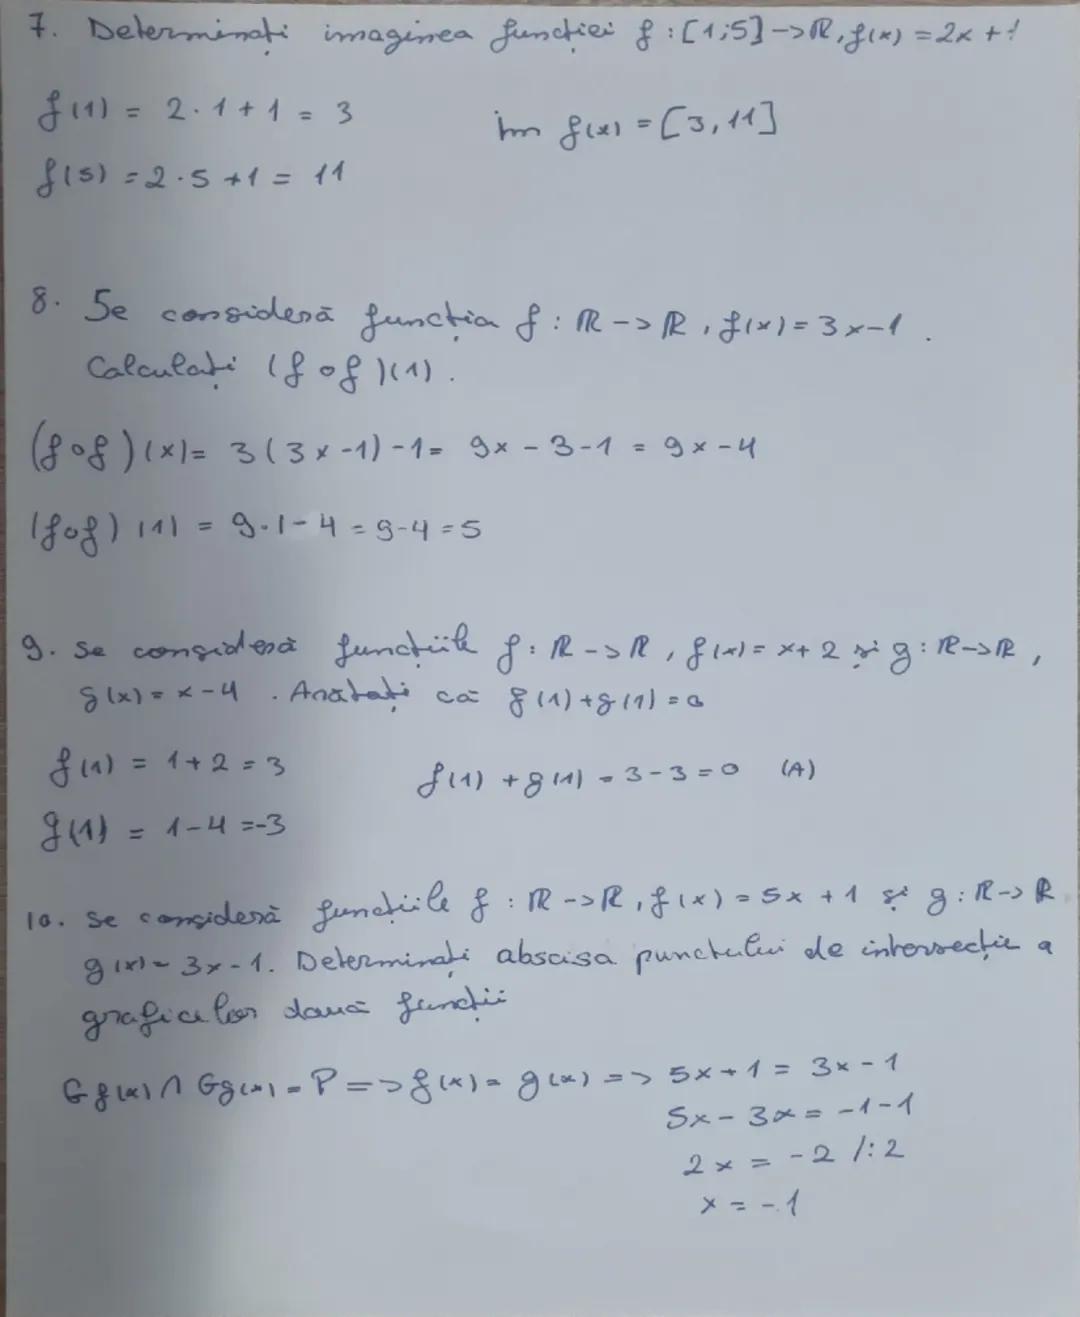 7. Determinați imaginea funcției f : [1;5] -> ℝ, f(x) = 2x + 1
f(1) = 2 · 1 + 1 = 3
im f(x) = [3, 11]
f(5) = 2 · 5 + 1 = 11
8. Se consideră funcția f : ℝ -> ℝ, f(x) = 3x - 1 .
Calculați (f o f)(1) .
(f o f)(x) = 3(3x - 1) - 1 = 9x - 3 - 1 = 9x - 4
(f o f)(1) = 9 · 1 - 4 = 9 - 4 = 5
9. Se consideră funcțiile f : ℝ -> ℝ, f(x) = x + 2 și g : ℝ -> ℝ,
g(x) = x - 4 . Arătați că f(1) + g(1) = 0
f(1) = 1 + 2 = 3
f(1) + g(1) = 3 - 3 = 0 (A)
g(1) = 1 - 4 = -3
10. Se consideră funcțiile f : ℝ -> ℝ, f(x) = 5x + 1 și g : ℝ -> ℝ
g(x) = 3x - 1. Determinați abscisa punctului de intersecție a
graficelor două funcții
Gf(x) ∩ Gg(x) = P => f(x) = g(x) => 5x + 1 = 3x - 1
5x - 3x = -1 - 1
2x = -2 /: 2
x = -1